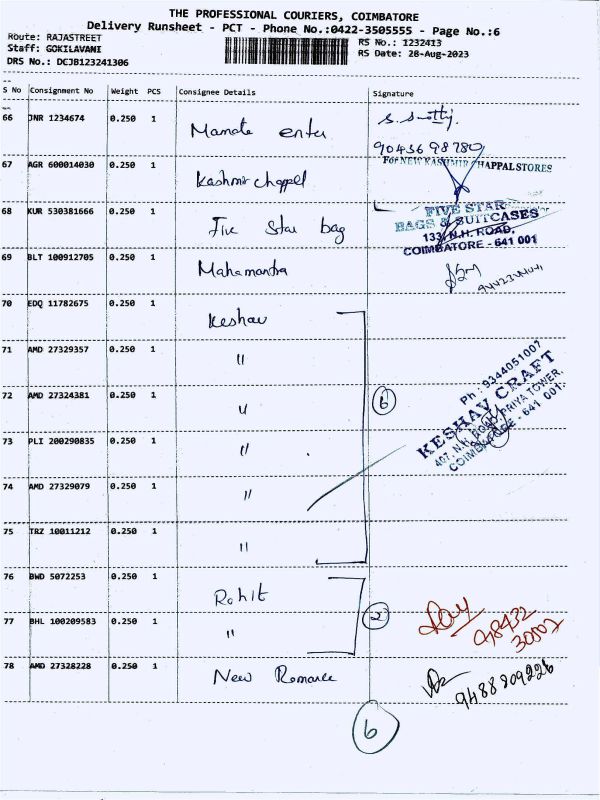 THE PROFESSIONAL COURIERS, COIMBATORE
Delivery Runsheet - PCT - Phone No.:0422-3505555 - Page No.:6
Route: RAJASTREET
Staff: GOKILAVANI
RS No.: 1232413
RS Date: 28-Aug-2023
DRS No.: DCJB123241306
S No Consignment No Weight PCS Consignee Details Signature
66 JNR 1234674 0.250 1 Mamata enter
9043698780
67 AGR 600014030 0.250 1 Kashmir Chappel
For NEW KASHMIR CHAPPAL STORES
68 KUR 530381666 0.250 1 Five Star bag
FIVE STAR
BAGS & SUITCASES
133, N.H. ROAD,
COIMBATORE - 641 001
69 BLT 100912705 0.250 1 Mahamantra
70 EDQ 11782675 0.250 1 Keshav
71 AMD 27329357 0.250 1 "
72 AMD 27324381 0.250 1 "
6
Ph : 9344051007
KESHAV CRAFT
407, N.H. ROAD, PRIYA TOWER,
COIMBATORE - 641 001.
73 PLI 200290835 0.250 1 "
74 AMD 27329079 0.250 1 "
75 TRZ 10011212 0.250 1 "
76 BWD 5072253 0.250 1 Rohit
2
77 BHL 100209583 0.250 1 "
98432
30007
78 AMD 27328228 0.250 1 New Romance
9488809226
6